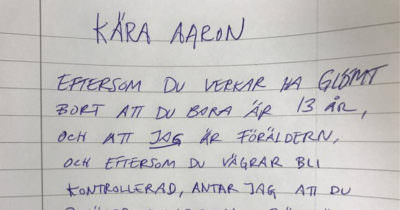 KÄRA AARON
EFTERSOM DU VERKAR HA GLÖMT
BORT ATT DU BARA ÄR 13 ÅR,
OCH ATT JAG ÄR FÖRÄLDERN,
OCH EFTERSOM DU VÄGRAR BLI
KONTROLLERAD, ANTAR JAG ATT DU